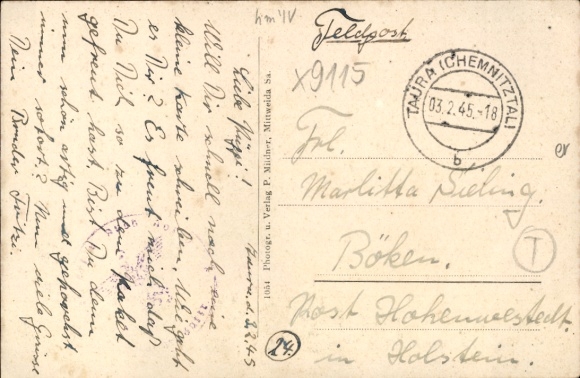 Taura, d. 2.2.45
Liebe Püppi!
Will Dir schnell noch eine
kleine Karte schreiben. Wie geht
es Dir? Es freut mich, daß
Du Dich so zu dem Paket
gefreut hast. Bist Du denn
nun schön artig und gehorchst
immer sofort? Nun viele Grüsse
Dein Bruder
1054 Photogr. u. Verlag P. Mildner, Mittweida Sa.
Feldpost
x9115
TAURA (CHEMNITZTAL)
03.2.45.-18
b
Frl.
Marlitta Sieling.
Böken.
T
Post Hohenwestedt
in Holstein.
24.